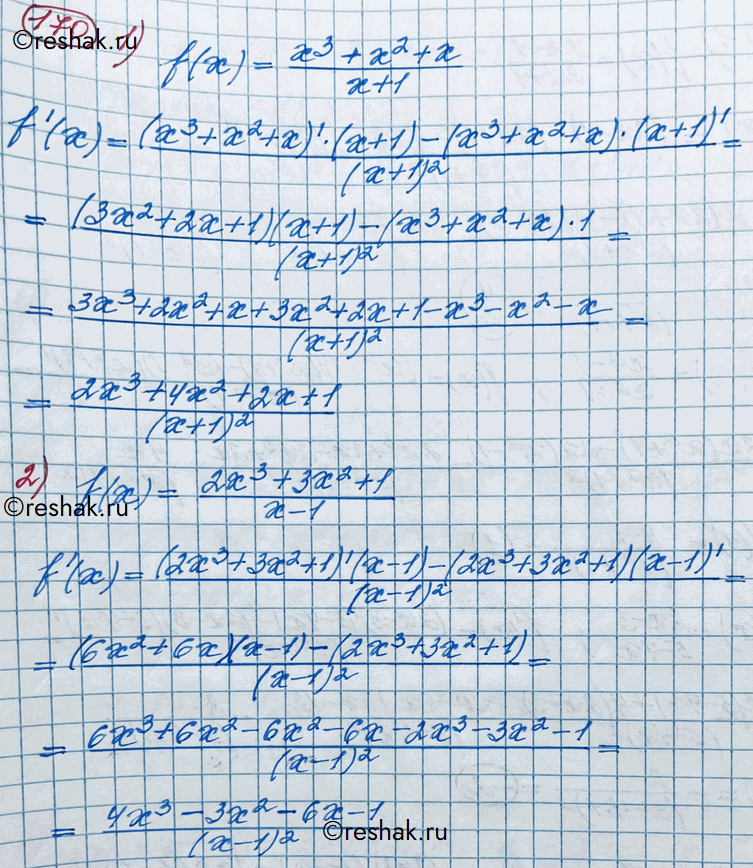 170
©reshak.ru
1) f(x) = (x³ + x² + x)/(x+1)
f'(x) = ((x³+x²+x)'·(x+1) − (x³+x²+x)·(x+1)')/(x+1)² =
= ((3x²+2x+1)(x+1) − (x³+x²+x)·1)/(x+1)² =
= (3x³+2x²+x+3x²+2x+1−x³−x²−x)/(x+1)² =
= (2x³+4x²+2x+1)/(x+1)²
2) f(x) = (2x³+3x²+1)/(x−1)
©reshak.ru
f'(x) = ((2x³+3x²+1)'(x−1) − (2x³+3x²+1)(x−1)')/(x−1)² =
= ((6x²+6x)(x−1) − (2x³+3x²+1))/(x−1)² =
= (6x³+6x²−6x²−6x−2x³−3x²−1)/(x−1)² =
= (4x³−3x²−6x−1)/(x−1)²
©reshak.ru